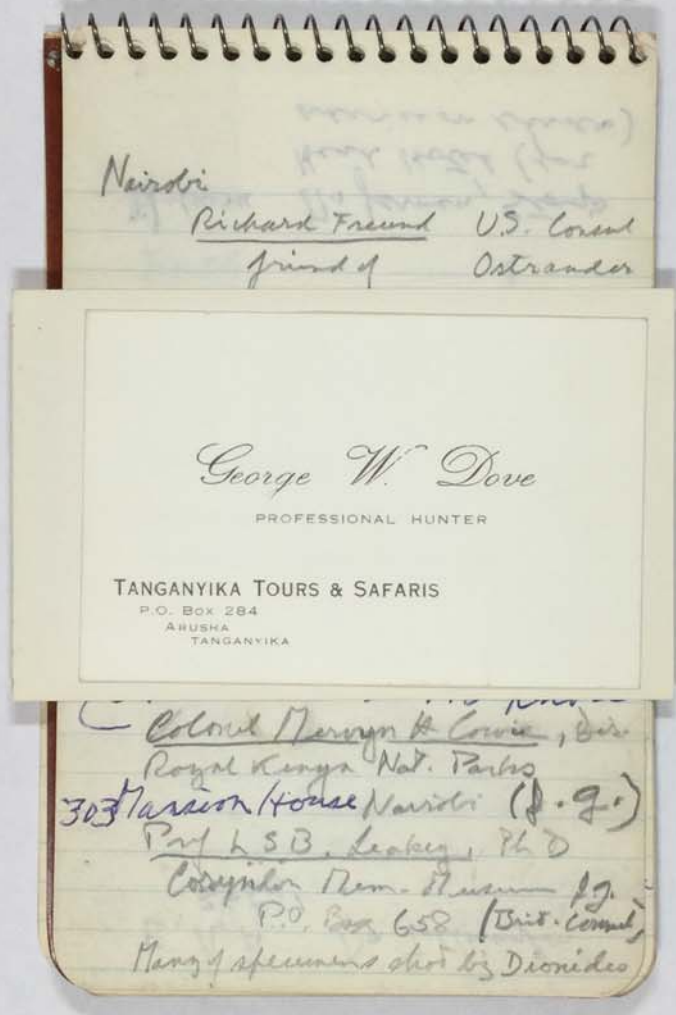 Nairobi
Richard Freund U.S. Consul
friend of Ostrander
George W. Dove
PROFESSIONAL HUNTER
TANGANYIKA TOURS & SAFARIS
P.O. BOX 284
ARUSHA
TANGANYIKA
Colonel Mervyn H Cowie, Dir.
Royal Kenya Nat. Parks
303 Mansion House Nairobi (f.g.)
Prof L S B. Leakey, Ph D
Coryndon Mem. Museum f.g.
P.O. Box 658 (Brit. Consul)
Many of specimens shot by Dionides